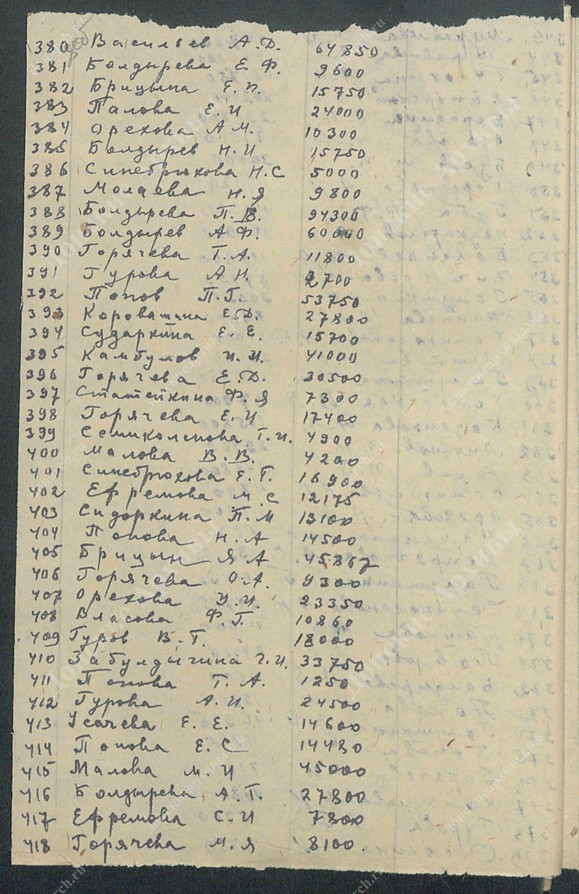 380 Васильев А.Д. 64850
381 Болдырева Е.Ф. 9600
382 Брицына Е.П. 15750
383 Палова Е.И 24000
384 Орехова А.М. 10300
385 Болдырев Н.И 15750
386 Синебрюхова Н.С 5000
387 Молаева Н.Я 9800
388 Болдырева П.В. 94300
389 Болдырев А.Ф. 60000
390 Горячева Т.А. 11800
391 Гурова А.Н. 2700
392 Попов П.Г. 53750
393 Коровашина Е.Д. 27800
394 Сударкина Е.Е. 15700
395 Камбулов И.И. 41000
396 Горячева Е.Д. 30500
397 Статейкина Ф.Я 7300
398 Горячева Е.И 17400
399 Семиколенова Т.И. 4900
400 Малова В.В. 4200
401 Синебрюхова Е.Г. 16900
402 Ефремова М.С 12175
403 Сидоркина П.М 13100
404 Попова Н.А 14500
405 Брицын Я.А 45867
406 Горячева О.А. 9300
407 Орехова У.И. 23350
408 Власова Ф.Г. 10860
409 Гуров В.Т. 18000
410 Забулдычина 33750
411 Попова Т.А. 1250
412 Гурова А.И. 24500
413 Усачева Е.Е. 14600
414 Попова Е.С 14480
415 Малова М.И 45000
416 Болдырева А.Т. 27800
417 Ефремова С.И 7800
418 Горячева М.Я 8100